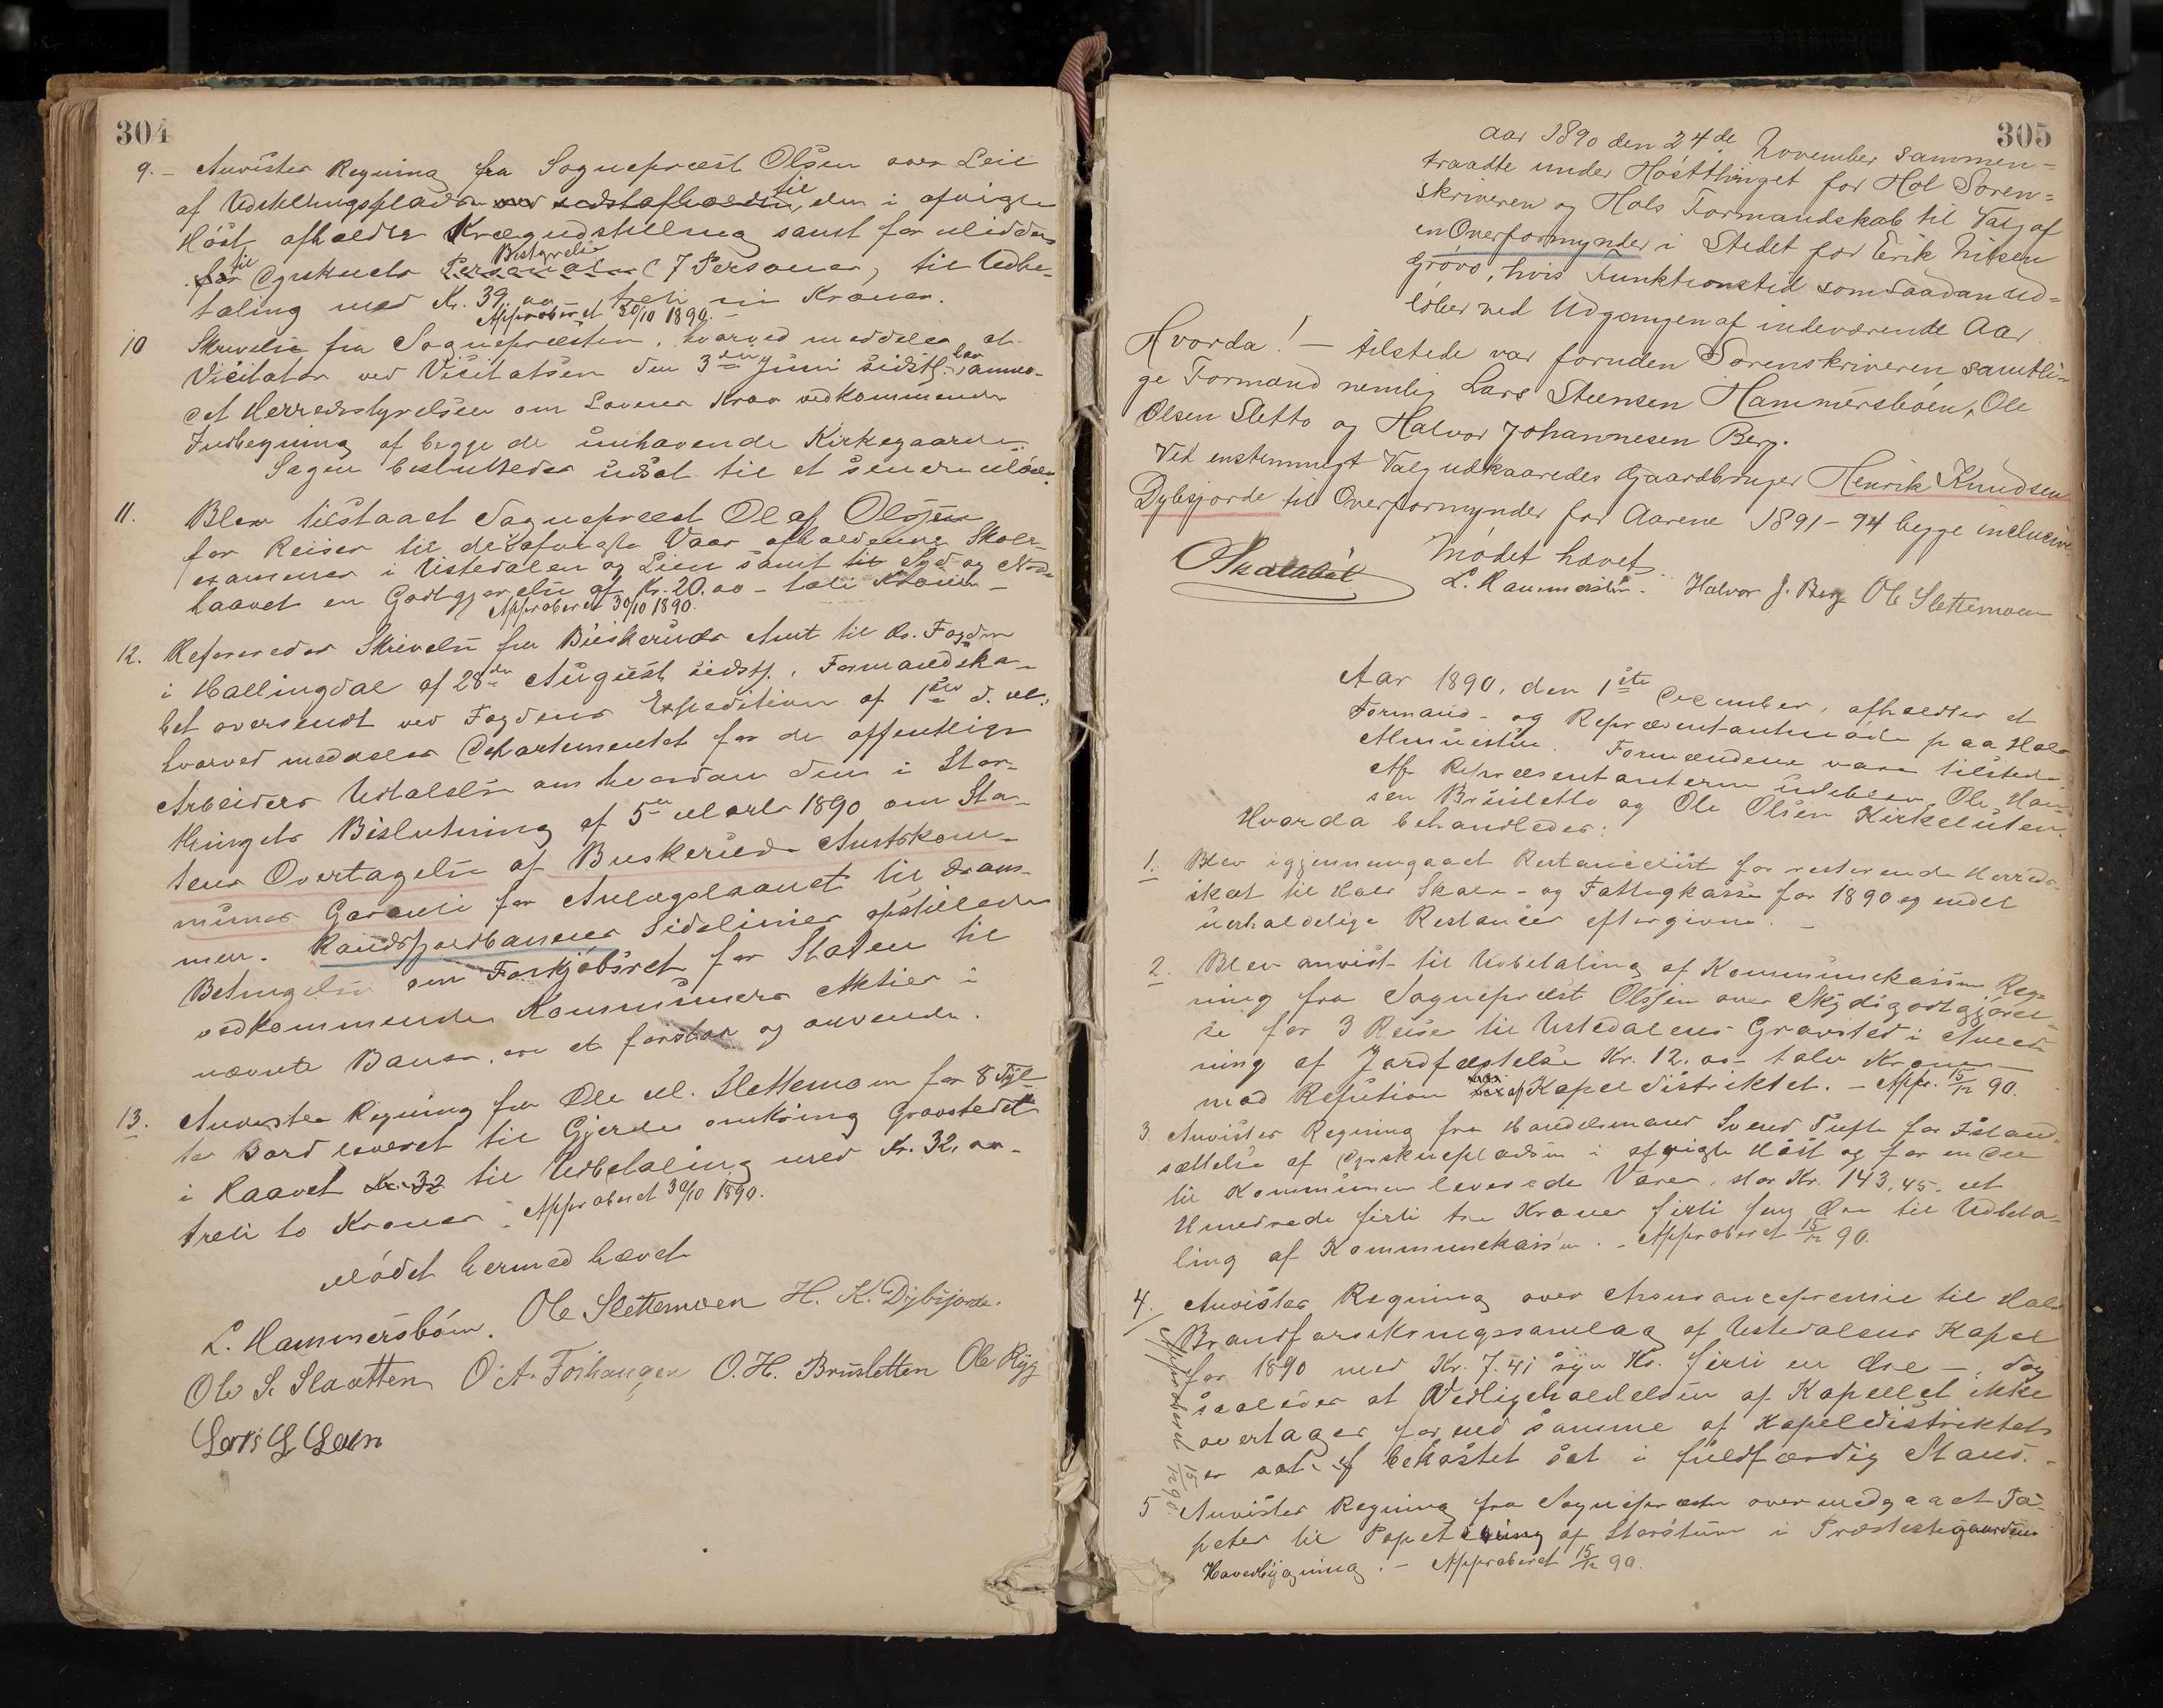 304
9. – Anvistes Regning fra Sogneprest Olsen over Leie
af Udstillingspladsen ved sidstafholdte, til den i afvigte
Høst afholdte Kreægudstilling samt for Middag
for til Dyrskuets Personale Bestyrelse (7 Personer) til Udbe-
taling med Kr. 39,00 – treti ni Kroner.
Approberet 30/10 1890. –
10 Skrivelse fra Sognepresten, hvorved meddeles at
Visitator ved Visitatsen den 3die Juni sidstl. har anmo-
det Herredsstyrelsen om Lovens Krav vedkommende
Indhegning af begge de inhavende Kirkegaarde.
Sagen besluttedes udsat til et senere Møde.
11. Blev tilstaaet Sogneprest Olaf Olsen
for Reiser til de i afvigte Vaar afholdende Skole-
examener i Ustedalen og Lien samt til Syd og Nord-
haavet en Godtgjørelse af Kr. 20.00 – tali Kroner –
Approberet 30/10 1890.
12. Refereredes Skrivelse fra Buskeruds Amt til Hr. Fogden
i Hallingdal af 28de August sidstl., Formandska-
bet oversendt ved Fogdens Expedition af 1ste d. M.,
hvorved meddeles Departementet for de offentlige
Arbeiders Udtalelse om hvordan den i Stor-
thingets Beslutning af 5te Marts 1890 om Sta-
tens Overtagelse af Buskeruds Amtskom-
munes Garanti for Anlægslaanet til Dram-
men. Randsfjordbanenes Sidelinier opstillede
Betingelse om Forkjøbsret for Staten til
vedkommende Kommuners Aktier i
nævnte Baner, er at forstaa og anvende.
13. Anvistes Regning fra Ole M. Slettemoen for 8 Tyl-
ter Bord leveret til Gjerde omkring Gravstedet
i Raavet Kr. 32 til Udbetaling med Kr. 32,00 –
treti to Kroner. Approberet 30/10 1890.
Mødet hermed hævet
L. Hammersbøen. Ole Slettemoen H. K. Dybsjorde.
Ole S. Slaatten O. A. Forhaugen O. H. Brusletten Ole Rygg
Lars L Lein
305
Aar 1890 den 24de November sammen=
traadte under Høstthinget for Hol Soren=
skriveren og Hols Formandskab til Valg af
en Overformynder i Stedet for Erik Nilsen
Grøvo, hvis Funktionstid som saadan ud=
løber ved Udgangen af indeværende Aar.
Hvorda! – tilstede var foruden Sorenskriveren samtli-
ge Formænd nemlig Lars Steensen Hammersbøen, Ole
Olsen Sletto og Halvor Johannesen Berg.
Ved enstemmigt Valg udkaaredes Gaardbruger Henrik Knudsen
Dybsjorde til Overformynder for Aarene 1891–94 begge inclusive
Mødet hævet.
L. Hammersbøen. Halvor J. Berg Ole Slettemoen
Aar 1890, den 1ste December, afholdtes et
Formands- og Repræsentantmøde paa Hols
Almuestue. Formændene vare tilstede
Af Repræsentanterne udeblev Ole Han-
sen Brusletto og Ole Olsen Kirkesluten.
Hvorda behandledes:
1. Blev igjennemgaaet Restancelist for resterende Herreds-
skat til Hols Skole- og Fattigkasse for 1890 og endel
uerholdelige Restancer eftergivne. –
2. Blev anvist til Udbetaling af Kommunekassen Reg-
ning fra Sogneprest Olsen over Skydsgodtgjørel-
se for 3 Reiser til Ustedalens Gravsted i Anled-
ning af Jordfæstelse Kr. 12.00 – tolv Kroner –
mod Refusion af Kapeldistriktet. – Appr. 15/12 90.
3. Anvistes Regning fra Handelsmand Svend Tufte for Istand-
sættelse af Dyrskuepladsen i afvigte Høst og for en Del
til Kommunen leverede Varer, stor Kr. 143,45 – et
Hundrede firti tre Kroner firti fem Øre til Udbeta-
ling af Kommunekassen. – Approberet 15/12 90.
4. Anvistes Regning over Assurancepremie til Hols
Brandforsikringssamlag af Ustedalens Kapel
for 1890 med Kr. 7.41 syv Kr. firti en Øre –, dog
saaledes at Vedligeholdelsen af Kapellet ikke
overtages førend samme af Kapeldistriktet
er sat bekostet sat i fuldfærdig Stand. –
Approberet 15/12 90.
5 Anvistes Regning fra Sognepresten over medgaaet Ta-
peter til Tapetsering af Storstuen i Prestegaardens
Hovedbygning. – Approberet 15/12 90.